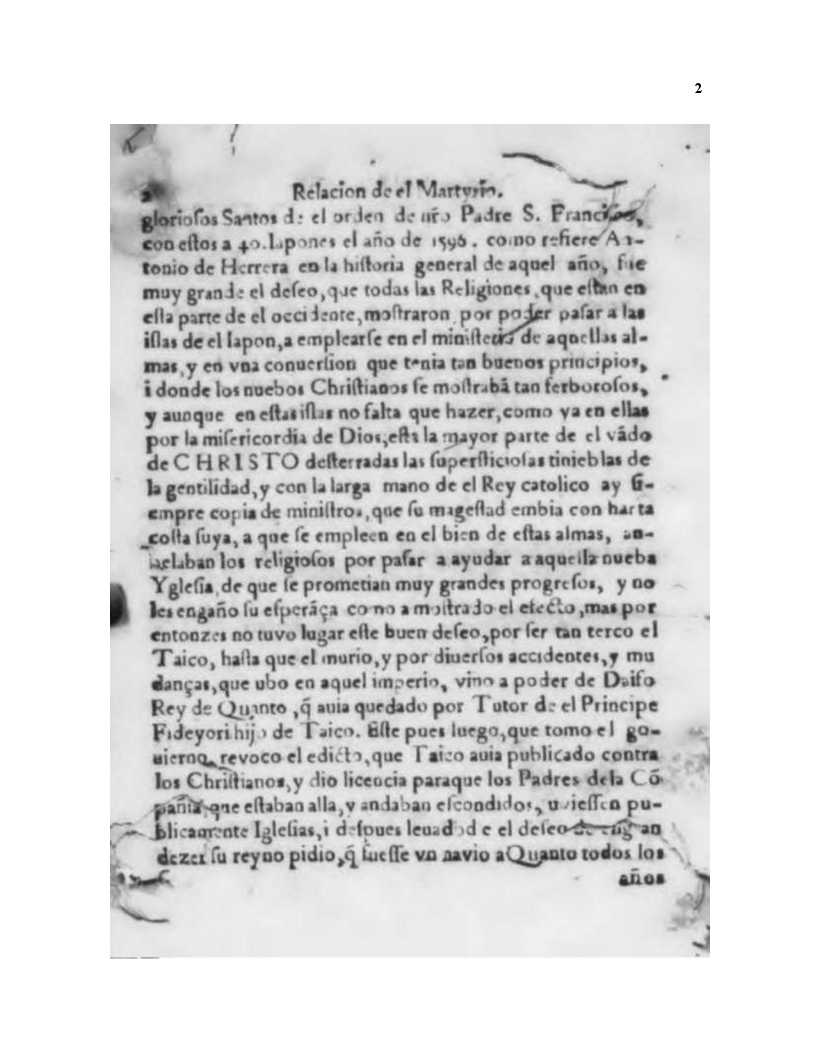 2
2 Relacion de el Martyrio.
glorioſos Santos de el orden de nr̃o Padre S. Franciſco,
con eſtos a 40. Iapones el año de 1596. como refiere An-
tonio de Herrera en la hiſtoria general de aquel año, fue
muy grande el deſeo, que todas las Religiones, que eſtan en
eſta parte de el occidente, moſtraron por poder paſar a las
iſlas de el Iapon, a emplearſe en el miniſterio de aquellas al-
mas, y en vna conuerſion que tenia tan buenos principios,
i donde los nuebos Chriſtianos ſe moſtrabã tan ferboroſos,
y aunque en eſtas iſlas no falta que hazer, como ya en ellas
por la miſericordia de Dios, eſta la mayor parte de el vãdo
de CHRISTO deſterradas las ſuperſticioſas tinieblas de
la gentilidad, y con la larga mano de el Rey catolico ay ſi-
empre copia de miniſtros, que ſu mageſtad embia con harta
coſta ſuya, a que ſe empleen en el bien de eſtas almas, an-
helaban los religioſos por paſar a ayudar a aquella nueba
Ygleſia, de que ſe prometian muy grandes progreſos, y no
les engaño ſu eſperãça como a moſtrado el efecto, mas por
entonzes no tuvo lugar eſte buen deſeo, por ſer tan terco el
Taico, haſta que el murio, y por diuerſos accidentes, y mu
danças, que ubo en aquel imperio, vino a poder de Daiſo
Rey de Quanto, q̃ auia quedado por Tutor de el Principe
Fideyori hijo de Taico. Eſte pues luego, que tomo el go-
uierno, revoco el edicto, que Taico auia publicado contra
los Chriſtianos, y dio licencia paraque los Padres dela Cõ
pañia, que eſtaban alla, y andaban eſcondidos, uuieſſen pu-
blicamente Igleſias, i deſpues leuadod e el deſeo de engran
dezer ſu reyno pidio, q̃ fueſſe vn navio aQuanto todos los
años